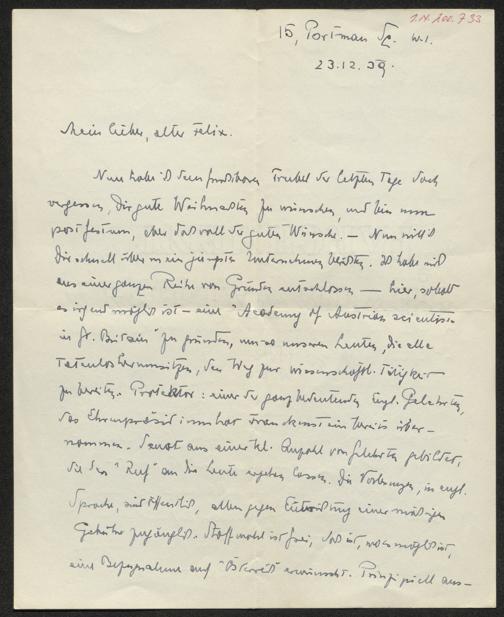 I.N. 200.733
15, Portman Sq. W.1.
23.12.39.
Mein lieber, alter Felix.
Nun habe ich dem furchtbaren Trubel der letzten Tage doch
vergessen, Dir gute Weihnachten zu wünschen, und bin nun
post festum, aber doch voll der guten Wünsche. — Nun will ich
Dir schnell über mein jüngstes Unternehmen berichten. Ich habe mich
aus einer ganzen Reihe von Gründen entschlossen — hier, sobald
es irgend möglich ist — eine "Academy of Austrian scientists
in Gt. Britain" zu gründen, um so unseren Leuten, die alle
tatenlos herumsitzen, den Weg zur wissenschaftl. Tätigkeit
zu bereiten. Protektor: einer der ganz bedeutenden Engl. Gelehrten,
das Ehrenpräsidium hat Franckenstein bereits über-
nommen. Senat aus einer kl. Anzahl von Gelehrten gebildet,
die den "Ruf" an die Leute ergehen lassen. Die Vorlesungen, in engl.
Sprache, sind öffentlich, allen gegen Entrichtung einer mäßigen
Gebühr zugänglich. Stoffwahl ist frei, doch ist, wo es möglich ist,
eine Bezugnahme auf "Österreich" erwünscht. Prinzipiell aus-